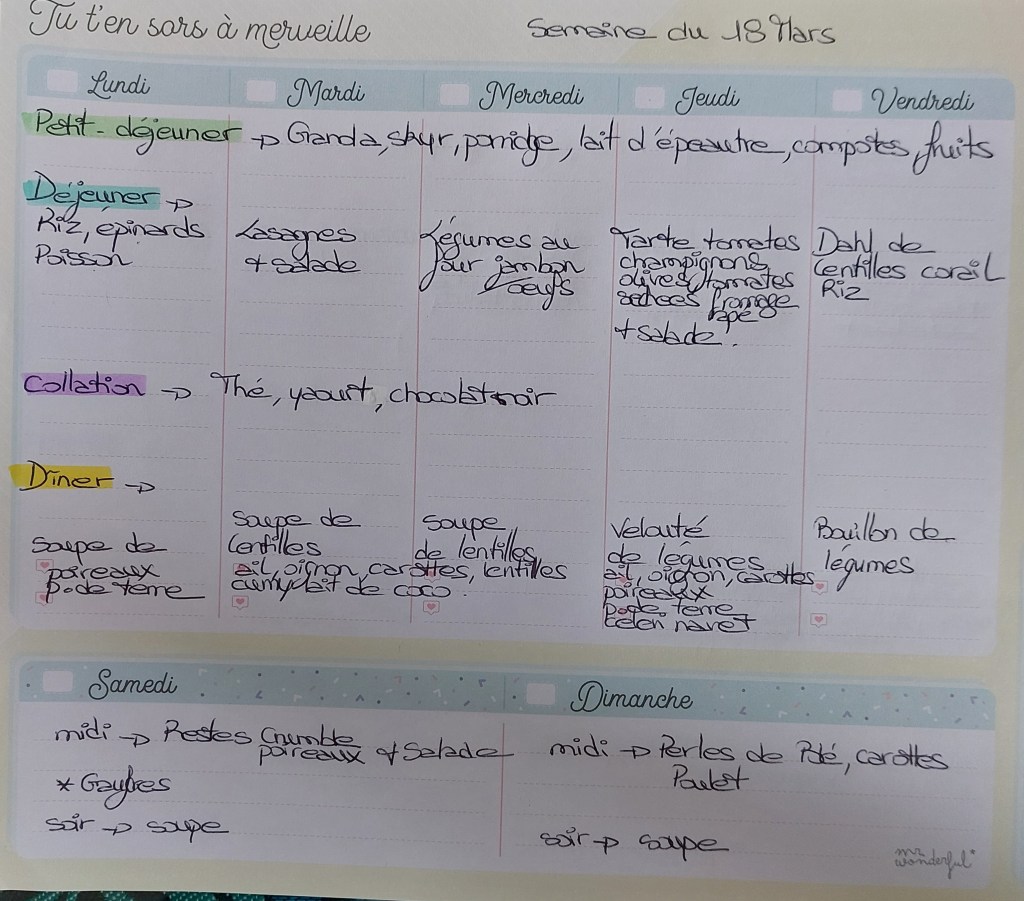 Tu t'en sors à merveille
Semaine du 18 Mars
Lundi Mardi Mercredi Jeudi Vendredi
Petit-déjeuner → Granola, skyr, porridge, lait d'épeautre, compotes, fruits
Déjeuner →
Riz, épinards
Poisson
Lasagnes
+ salade
Légumes au
four jambon
/oeufs
Tarte tomates
champignons
olives/tomates
séchées fromage
rapé
+ salade.
Dahl de
Lentilles corail
Riz
Collation → Thé, yaourt, chocolat noir
Dîner →
Soupe de
poireaux
p. de terre
Soupe de
lentilles
ail, oignon, carottes, lentilles
curry lait de coco.
Soupe
de lentilles
Velouté
de légumes
ail, oignon, carottes
poireaux
p. de terre
céleri navet
Bouillon de
légumes
Samedi
midi → Restes Crumble
poireaux + Salade
* Gaufres
soir → soupe
Dimanche
midi → Perles de Blé, carottes
Poulet
soir → soupe
mr wonderful*